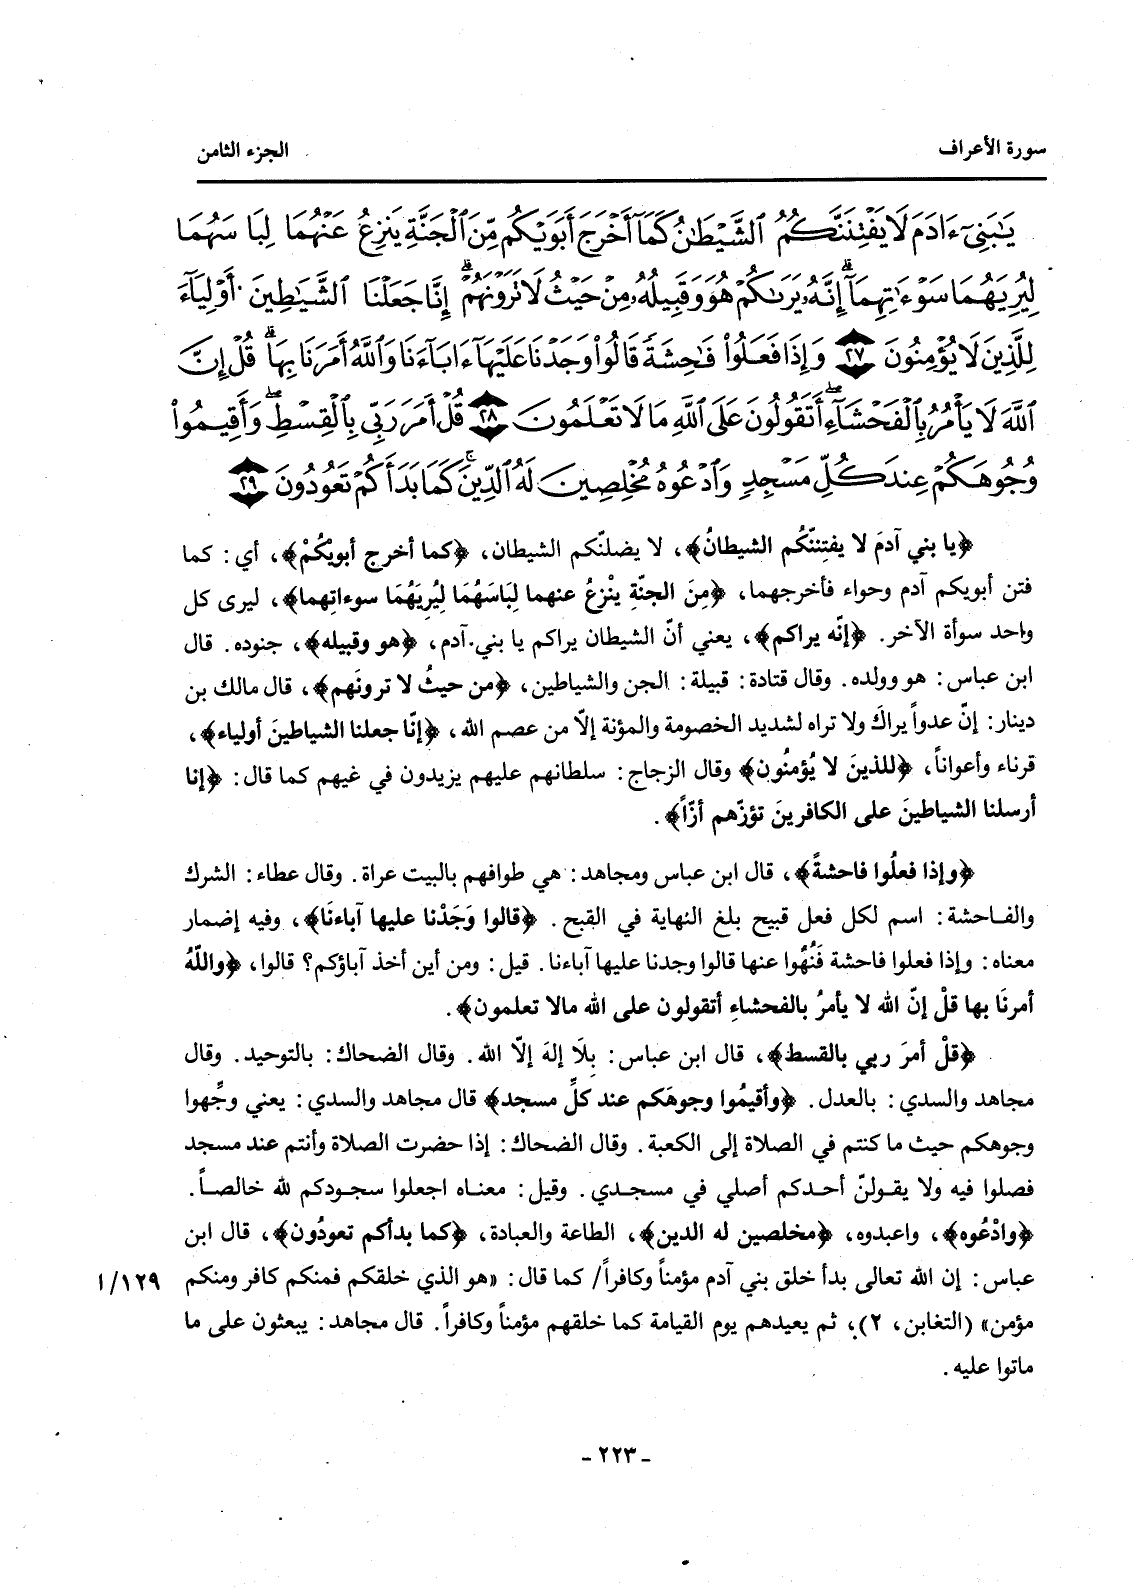 سورة الأعراف
الجزء الثامن
يَٰبَنِىٓ ءَادَمَ لَا يَفْتِنَنَّكُمُ ٱلشَّيْطَٰنُ كَمَآ أَخْرَجَ أَبَوَيْكُم مِّنَ ٱلْجَنَّةِ يَنزِعُ عَنْهُمَا لِبَاسَهُمَا
لِيُرِيَهُمَا سَوْءَٰتِهِمَآ ۗ إِنَّهُۥ يَرَىٰكُمْ هُوَ وَقَبِيلُهُۥ مِنْ حَيْثُ لَا تَرَوْنَهُمْ ۗ إِنَّا جَعَلْنَا ٱلشَّيَٰطِينَ أَوْلِيَآءَ
لِلَّذِينَ لَا يُؤْمِنُونَ ٢٧ وَإِذَا فَعَلُوا۟ فَٰحِشَةً قَالُوا۟ وَجَدْنَا عَلَيْهَآ ءَابَآءَنَا وَٱللَّهُ أَمَرَنَا بِهَا ۗ قُلْ إِنَّ
ٱللَّهَ لَا يَأْمُرُ بِٱلْفَحْشَآءِ ۖ أَتَقُولُونَ عَلَى ٱللَّهِ مَا لَا تَعْلَمُونَ ٢٨ قُلْ أَمَرَ رَبِّى بِٱلْقِسْطِ ۖ وَأَقِيمُوا۟
وُجُوهَكُمْ عِندَ كُلِّ مَسْجِدٍ وَٱدْعُوهُ مُخْلِصِينَ لَهُ ٱلدِّينَ ۚ كَمَا بَدَأَكُمْ تَعُودُونَ ٢٩
﴿يا بني آدمَ لا يفتِننّكُم الشيطانُ﴾، لا يضلنّكم الشيطان، ﴿كما أخرج أبويْكُمْ﴾، أي: كما
فتن أبويكم آدم وحواء فأخرجهما، ﴿مِنَ الجنّةِ ينْزعُ عنهما لِبَاسَهُمَا لِيُرِيَهُمَا سوءاتِهما﴾، ليرى كل
واحد سوأة الآخر. ﴿إنّه يراكم﴾، يعني أنّ الشيطان يراكم يا بني آدم، ﴿هو وقبيله﴾، جنوده. قال
ابن عباس: هو وولده. وقال قتادة: قبيلة: الجن والشياطين، ﴿من حيثُ لا ترونَهم﴾، قال مالك بن
دينار: إنّ عدواً يراكَ ولا تراه لشديد الخصومة والمؤنة إلاّ من عصم الله، ﴿إنّا جعلنا الشياطينَ أولياء﴾،
قرناء وأعواناً، ﴿للذينَ لا يُؤمنُون﴾ وقال الزجاج: سلطانهم عليهم يزيدون في غيهم كما قال: ﴿إنا
أرسلنا الشياطينَ على الكافرينَ تؤزّهم أزّاً﴾.
﴿وإذا فعلُوا فاحشةً﴾، قال ابن عباس ومجاهد: هي طوافهم بالبيت عراة. وقال عطاء: الشرك
والفاحشة: اسم لكل فعل قبيح بلغ النهاية في القبح. ﴿قالوا وَجَدْنا عليها آباءنَا﴾، وفيه إضمار
معناه: وإذا فعلوا فاحشة فَنُهُوا عنها قالوا وجدنا عليها آباءنا. قيل: ومن أين أخذ آباؤكم؟ قالوا، ﴿واللّهُ
أمرنَا بها قلْ إنّ الله لا يأمرُ بالفحشاءِ أتقولون على الله مالا تعلمون﴾.
﴿قلْ أمرَ ربي بالقسط﴾، قال ابن عباس: بِلاَ إلهَ إلاّ الله. وقال الضحاك: بالتوحيد. وقال
مجاهد والسدي: بالعدل. ﴿وأقيمُوا وجوهَكم عند كلِّ مسجد﴾ قال مجاهد والسدي: يعني وجِّهوا
وجوهكم حيث ما كنتم في الصلاة إلى الكعبة. وقال الضحاك: إذا حضرت الصلاة وأنتم عند مسجد
فصلوا فيه ولا يقولنّ أحدكم أصلي في مسجدي. وقيل: معناه اجعلوا سجودكم لله خالصاً.
﴿وادْعُوه﴾، واعبدوه، ﴿مخلصين له الدين﴾، الطاعة والعبادة، ﴿كما بدأكم تعودُون﴾، قال ابن
عباس: إن الله تعالى بدأ خلق بني آدم مؤمناً وكافراً/ كما قال: «هو الذي خلقكم فمنكم كافر ومنكم
١٢٩/ا
مؤمن» (التغابن، ٢)، ثم يعيدهم يوم القيامة كما خلقهم مؤمناً وكافراً. قال مجاهد: يبعثون على ما
ماتوا عليه.
- ٢٢٣ -